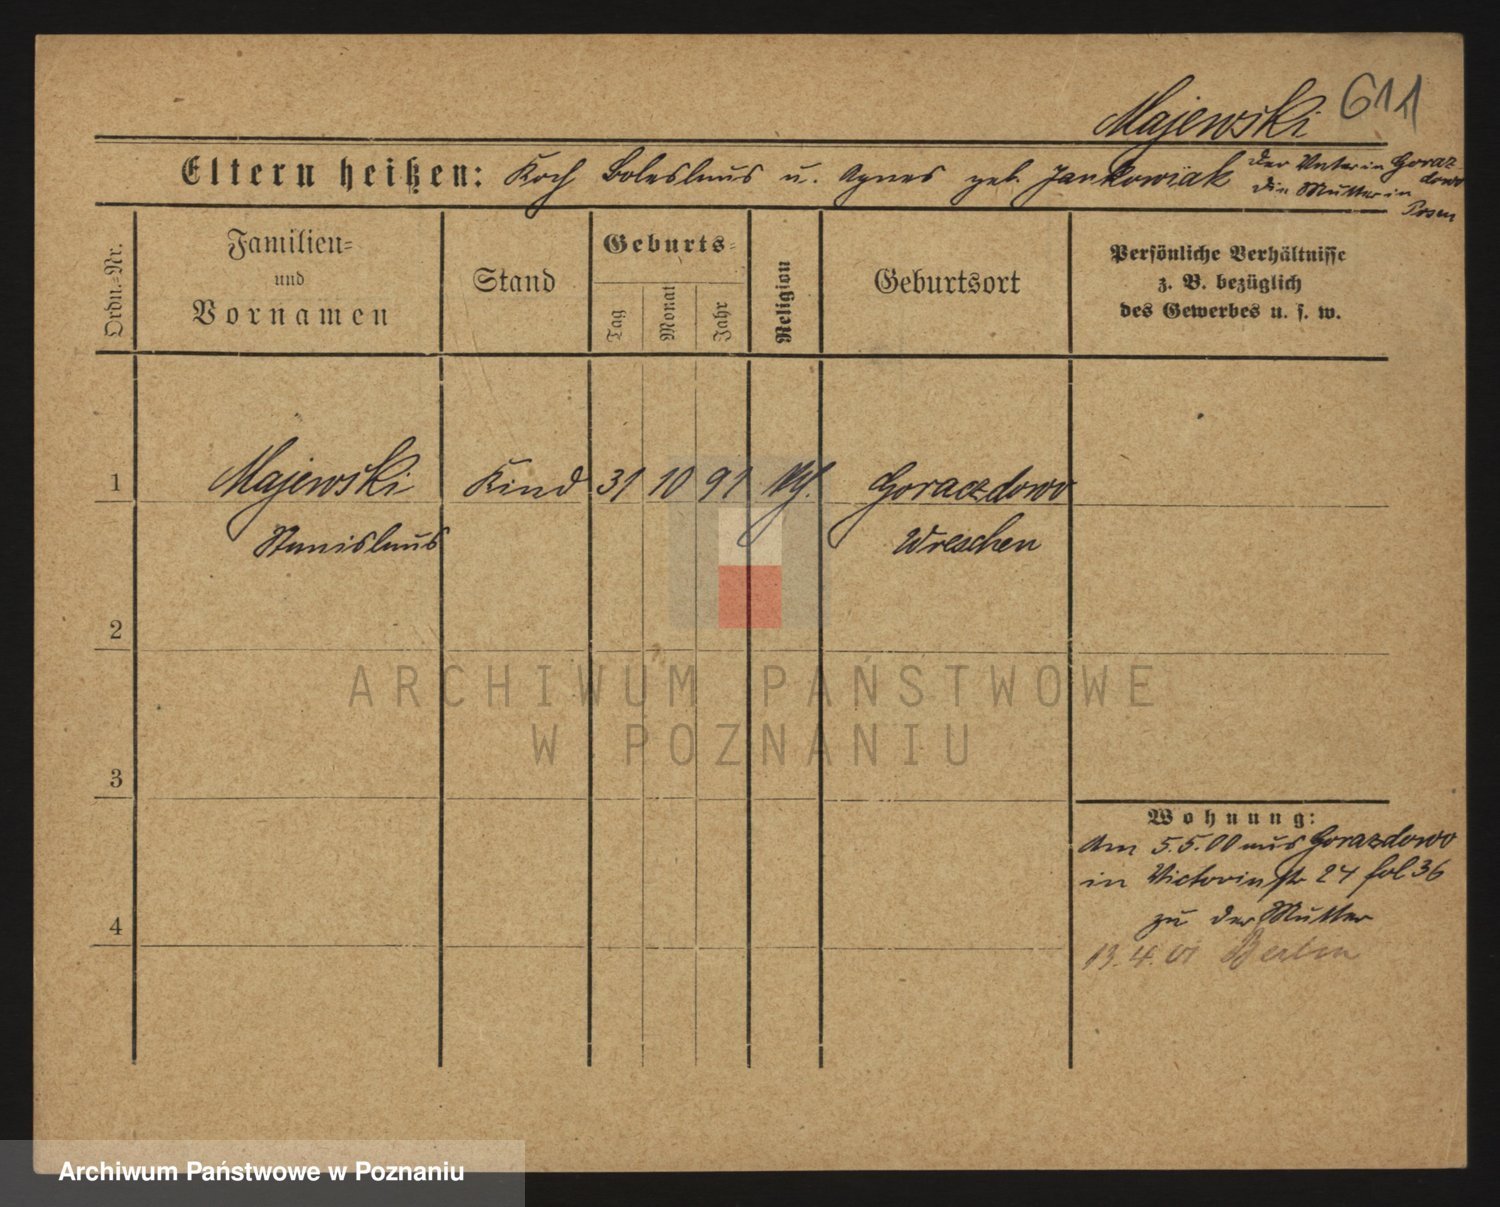 Majewski 611
Eltern heißen: Koch Boleslaus u. Agnes geb. Jankowiak der Vater in Goraz
dowo
die Mutter in
Posen
Ordn.-Nr.
Familien-
und
Vornamen
Stand
Geburts-
Tag
Monat
Jahr
Religion
Geburtsort
Persönliche Verhältnisse
z. B. bezüglich
des Gewerbes u. s. w.
1 Majewski Kind 31 10 91 kth. Goraczdowo
Stanislaus Wreschen
2
ARCHIWUM PAŃSTWOWE
W POZNANIU
3
Wohnung:
Am 5.5.00 aus Gorazdowo
in Victoriastr 24 fol 36
zu der Mutter
4
13.4.01 Berlin
Archiwum Państwowe w Poznaniu